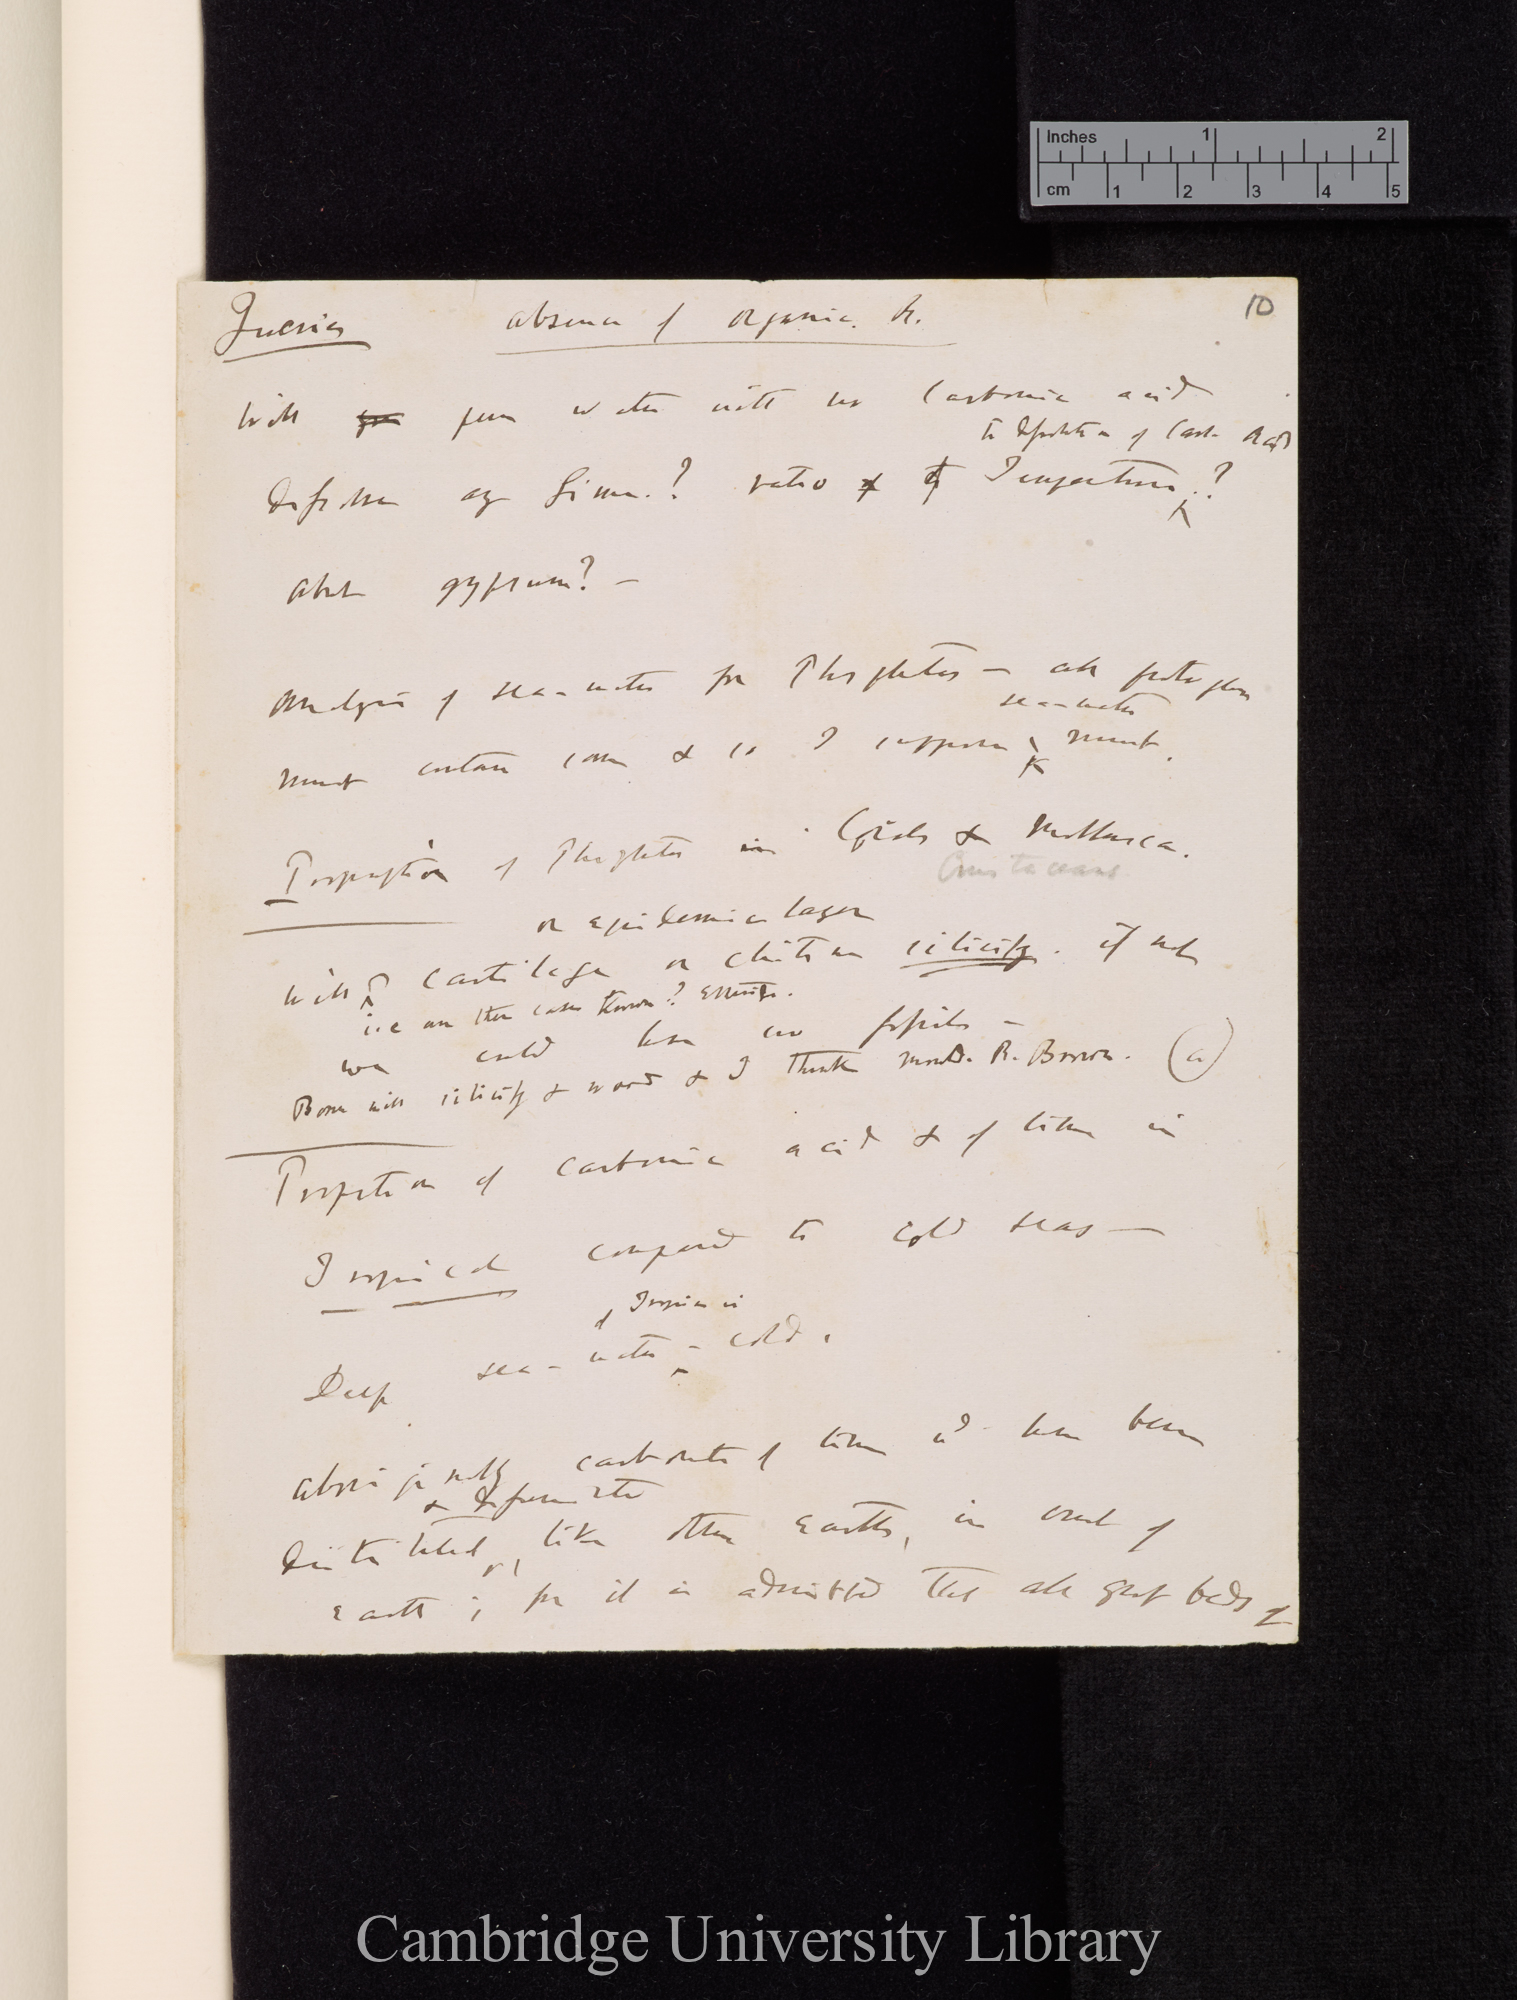 Inches 1 2
cm 1 2 3 4 5
10
Queries absence of organic &c.
Will pure water with no Carbonic acid
to proportion of Carb. Acid
dissolve any Lime? ratio of Temperature?
about gypsum? —
Analysis of sea-water for Phosphates — all
sea-water
must contain some & so I suppose must.
Proportion of Phosphates in Corals & Mollusca.
Crustaceans
or epidermic layer
Will cartilage or chitine silicify. if not
i.e. are there cases known?
we could have no fossils —
Bone will silicify & wood & I think R. Brown. (a)
Proportion of carbonic acid & of lime in
Tropical compared to cold seas —
of Tropics is
Deep sea-water cold.
Aboriginally carbonate of lime wd have been
distributed, like other earths, in crust of
earth; for it is admitted that all great beds of
Cambridge University Library